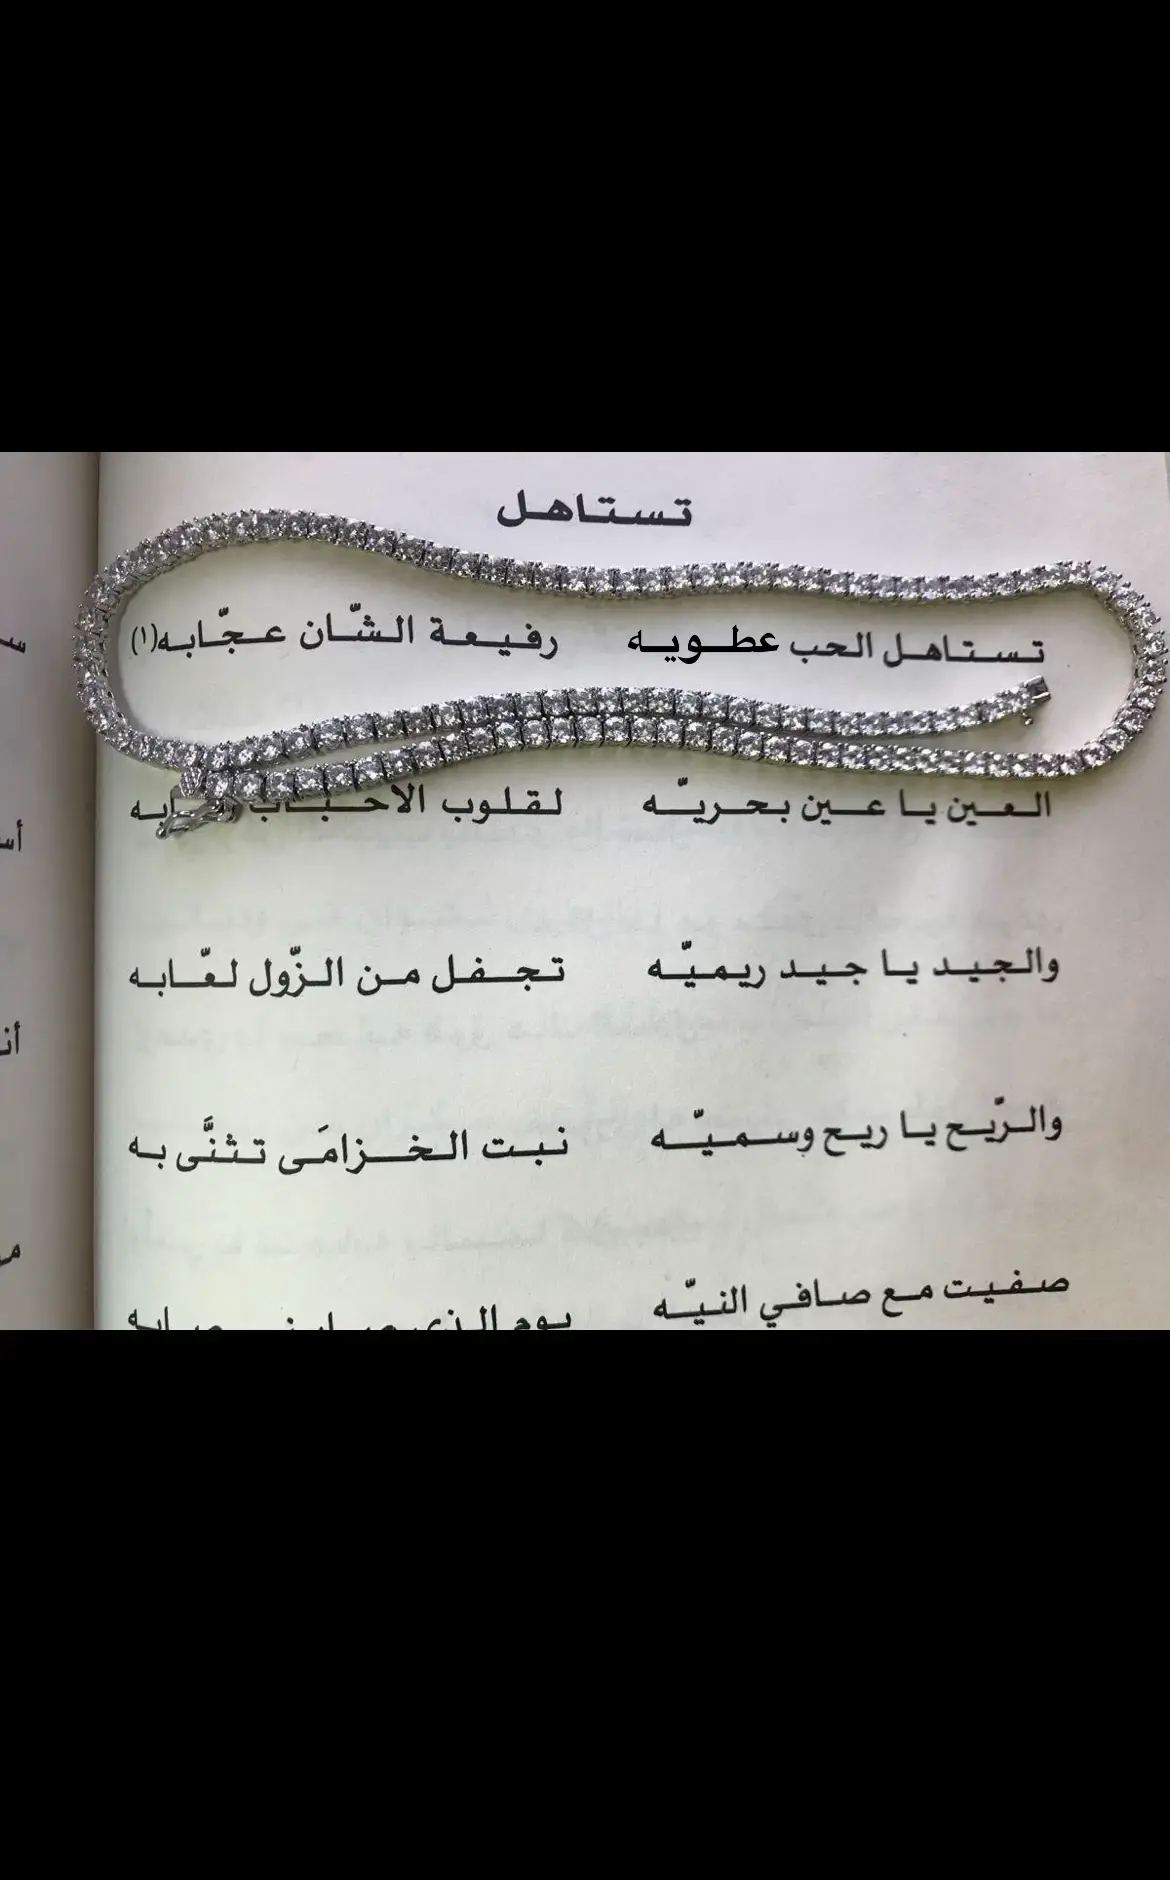 تستاهل
تستاهل الحب عطويه رفيعة الشّان عجّابه(١)
العين يا عين بحريّه لقلوب الاحباب
والجيد يا جيد ريميّه تجفل من الزّول لعّابه
والرّيح يا ريح وسميّه نبت الخزامَى تثنَّى به
صفيت مع صافي النيّه يوم الذي